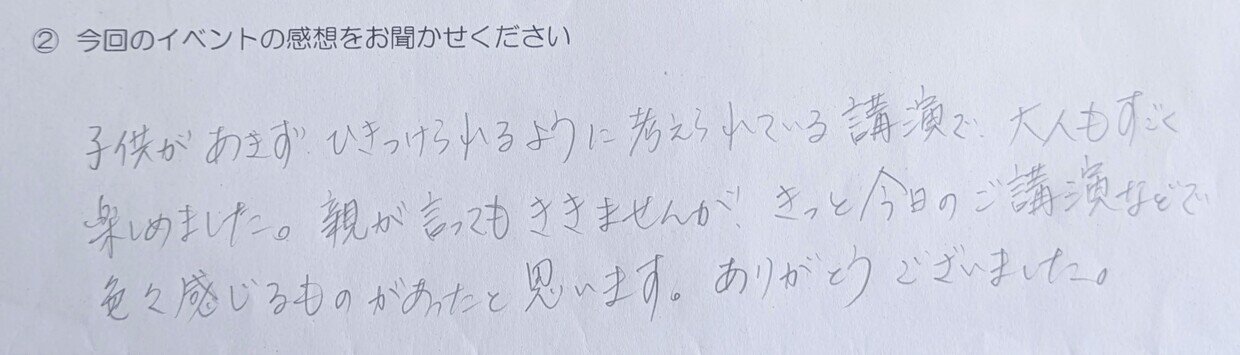 ② 今回のイベントの感想をお聞かせください
子供があきず、ひきつけられるように考えられている講演で、大人もすごく
楽しめました。親が言ってもききませんが、きっと今日のご講演などで
色々感じるものがあったと思います。ありがとうございました。